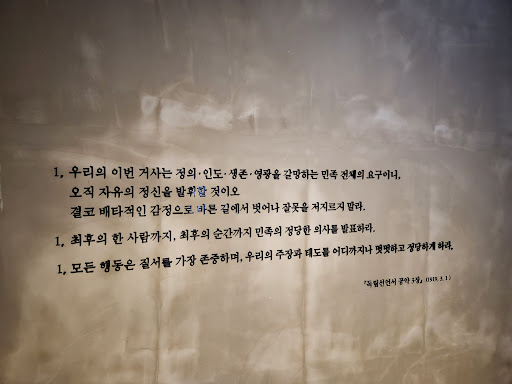 1, 우리의 이번 거사는 정의·인도·생존·영광을 갈망하는 민족 전체의 요구이니,
오직 자유의 정신을 발휘할 것이오
결코 배타적인 감정으로 바른 길에서 벗어나 잘못을 저지르지 말라.
1, 최후의 한 사람까지, 최후의 순간까지 민족의 정당한 의사를 발표하라.
1, 모든 행동은 질서를 가장 존중하며, 우리의 주장과 태도를 어디까지나 떳떳하고 정당하게 하라.
『독립선언서 공약 3장』 (1919. 3. 1)